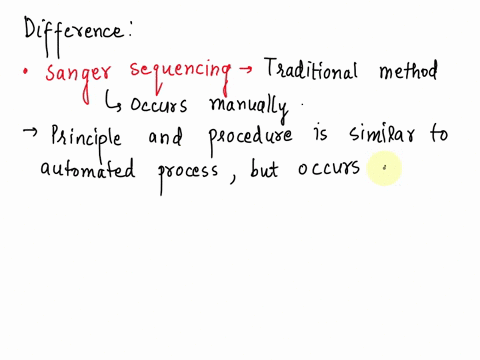 Difference:
• Sanger sequencing → Traditional method
↳ Occurs manually.
→ Principle and procedure is similar to
automated process, but occurs